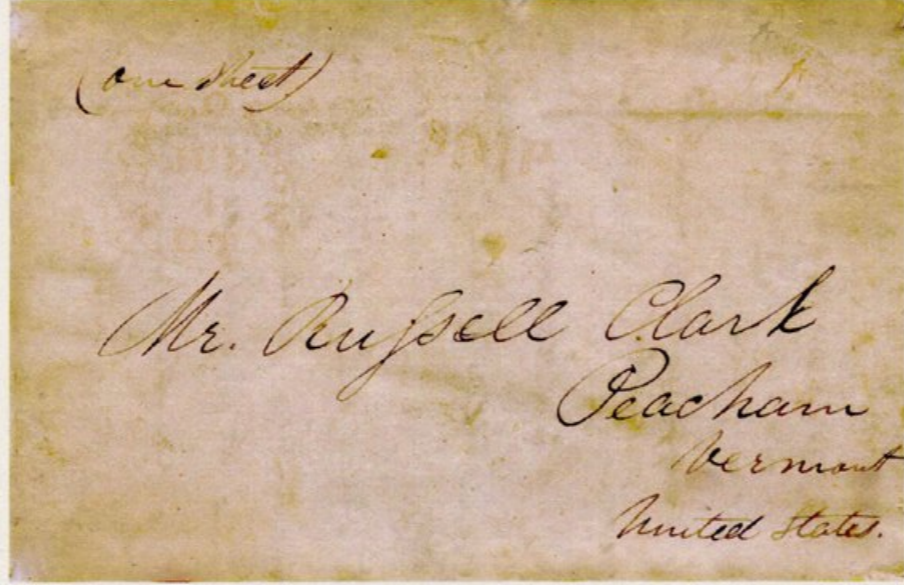 (one sheet)
Mr. Russell Clark
Peacham
Vermont
United States.